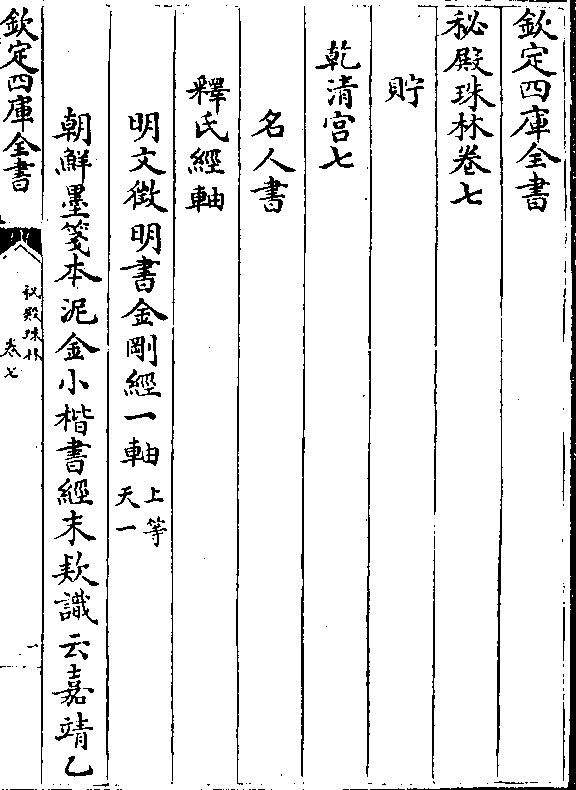 欽定四庫全書
秘殿珠林卷七
貯
乾清宮七
名人書
釋氏經軸
明文徴明書金剛經一軸上等
天一
朝鮮墨箋本泥金小楷書經末欵識云嘉靖乙
欽定四庫全書
秘殿珠林
卷七
一